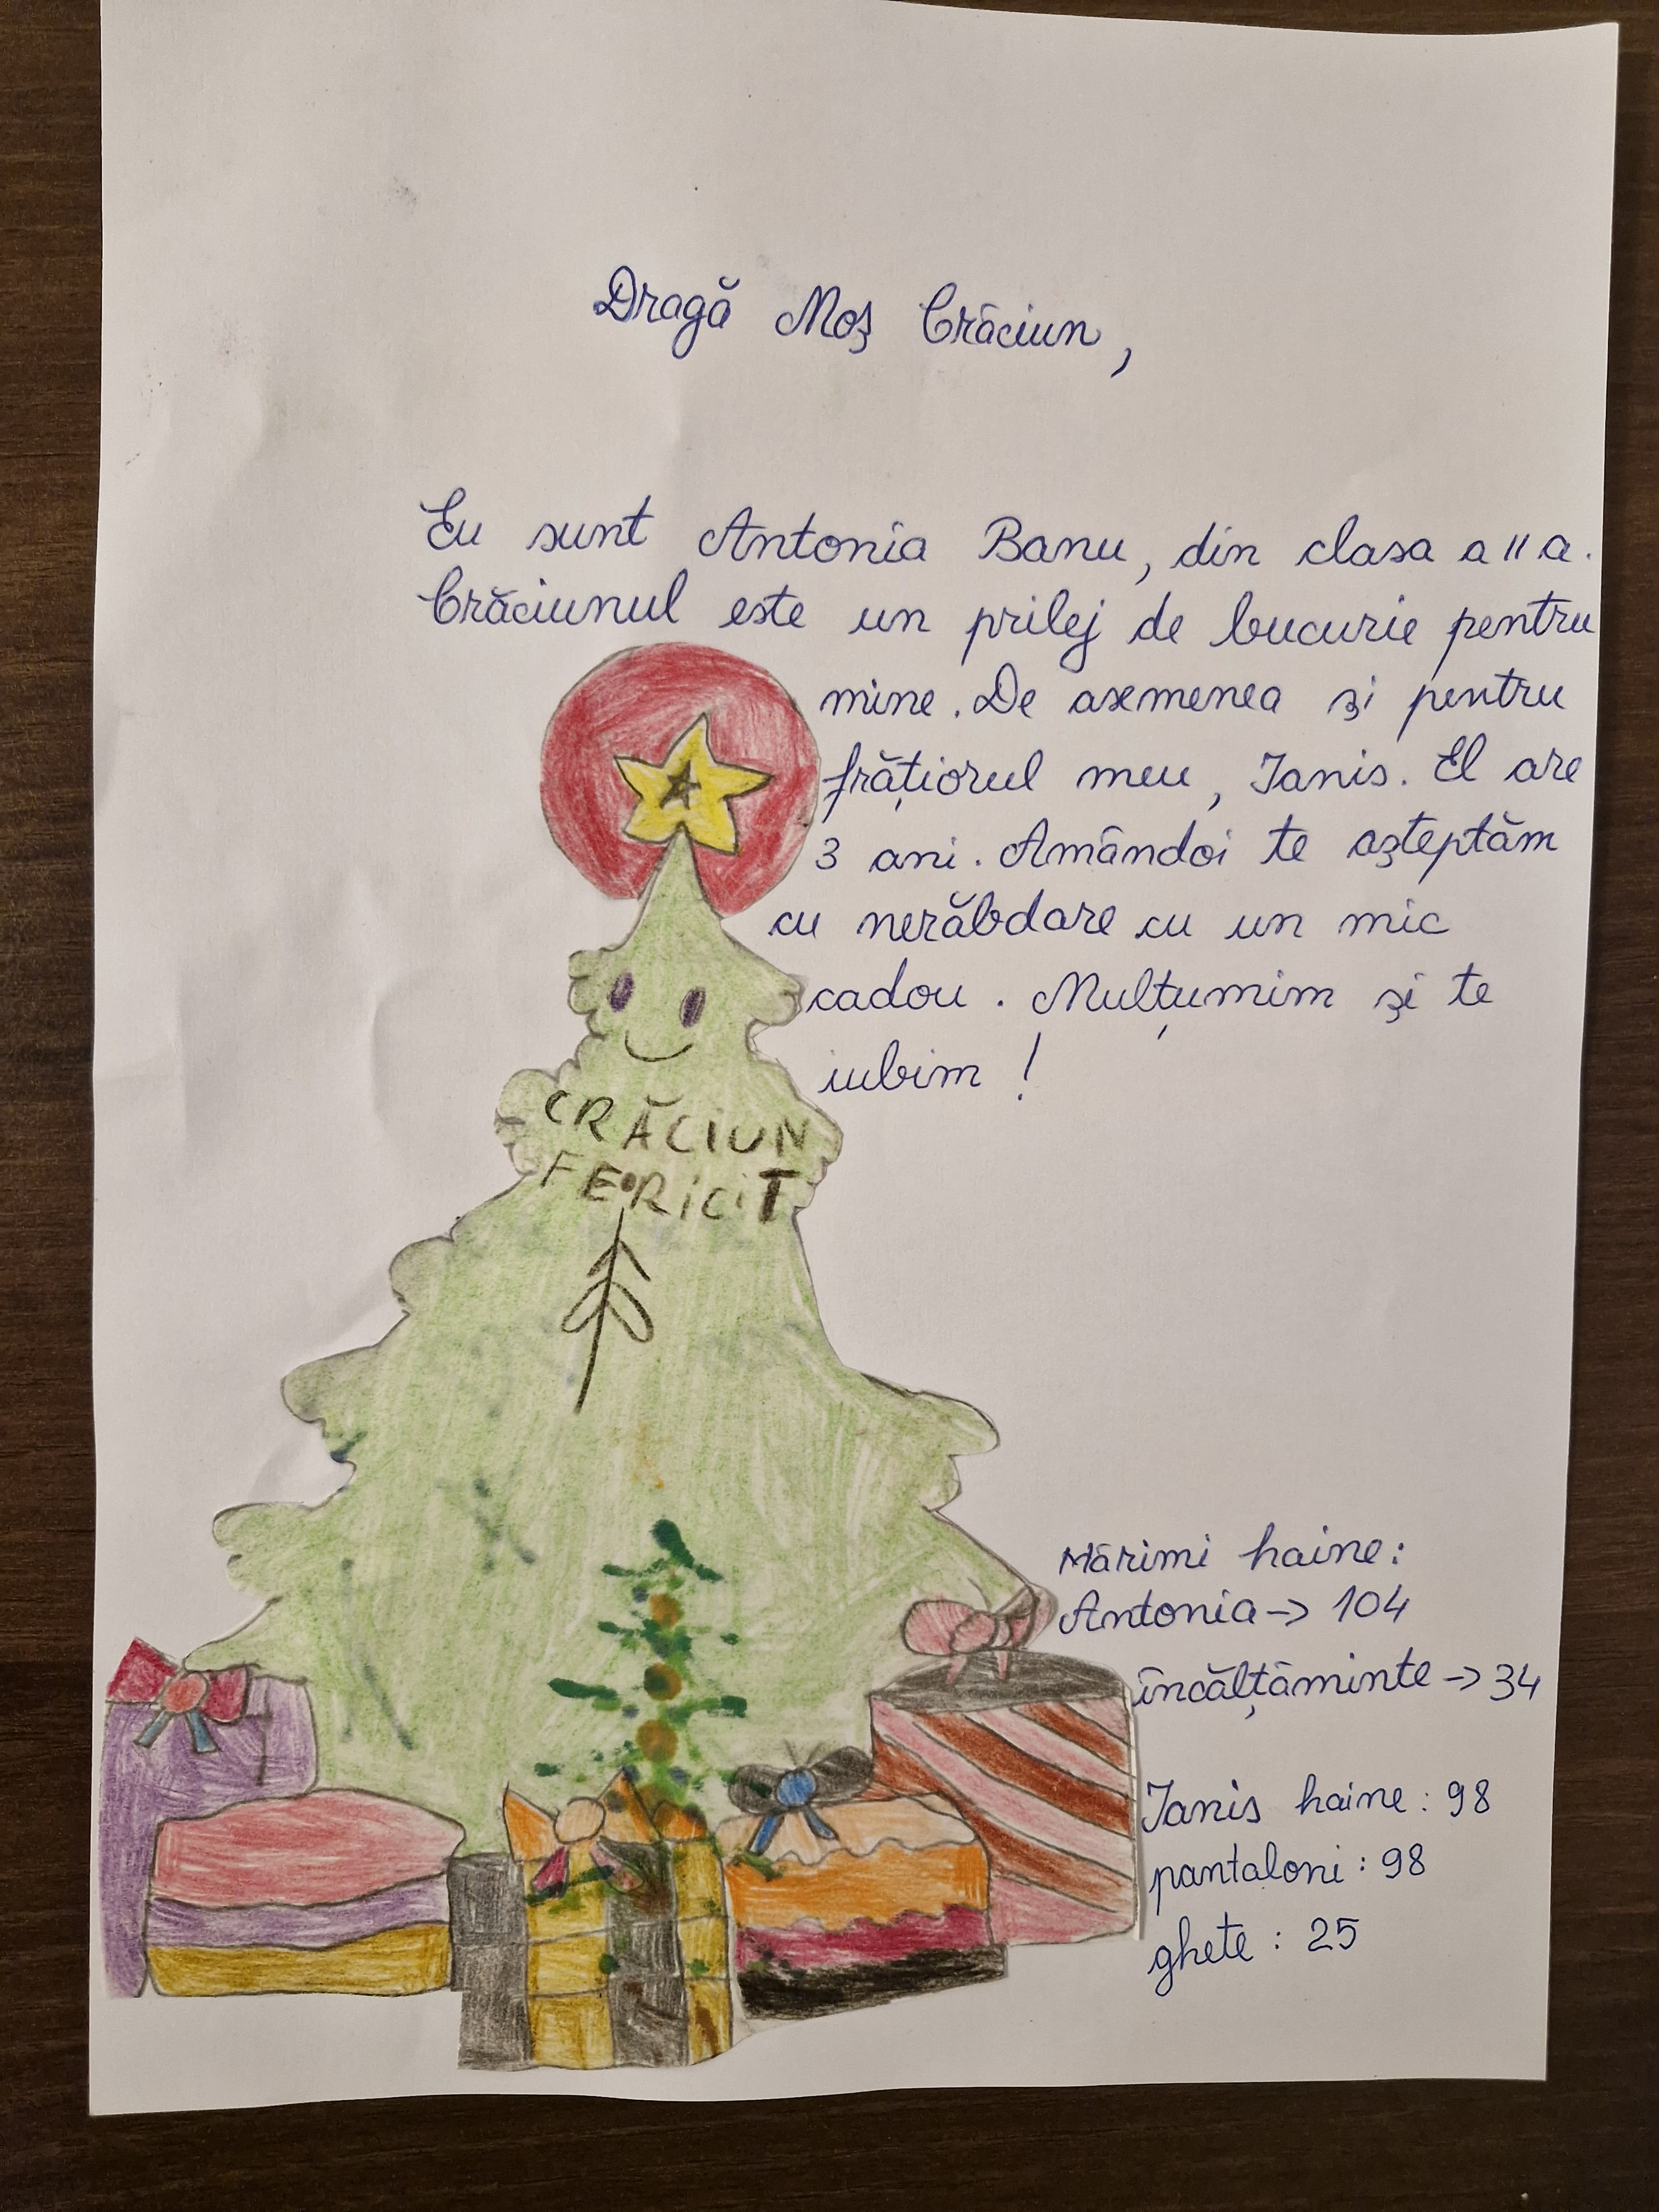 Dragă Moș Crăciun,
Eu sunt Antonia Banu, din clasa a II a.
Crăciunul este un prilej de bucurie pentru
mine. De asemenea și pentru
frățiorul meu, Ianis. El are
3 ani. Amândoi te așteptăm
cu nerăbdare cu un mic
cadou. Mulțumim și te
iubim!
A
CRĂCIUN
FERICIT
Mărimi haine:
Antonia -> 104
încălțăminte -> 34
Ianis haine: 98
pantaloni: 98
ghete: 25